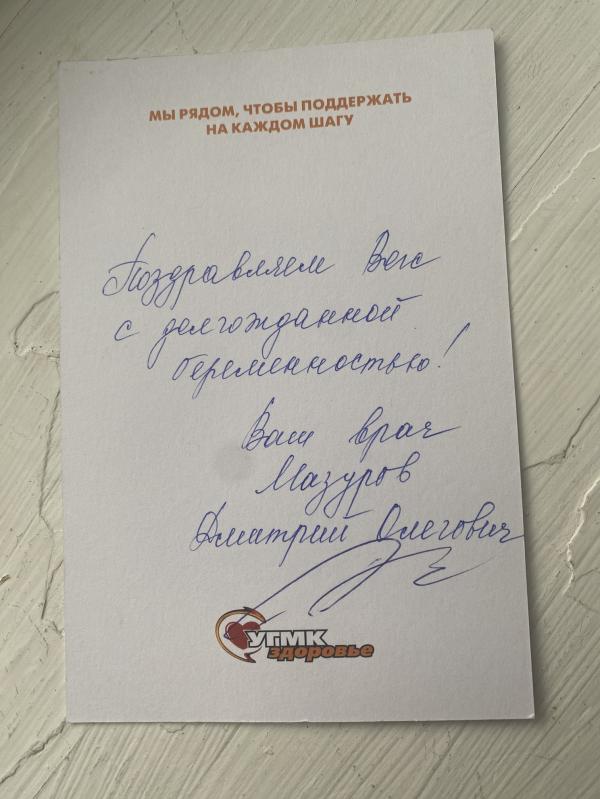 МЫ РЯДОМ, ЧТОБЫ ПОДДЕРЖАТЬ
НА КАЖДОМ ШАГУ
Поздравляем Вас
с долгожданной
беременностью!
Ваш врач
Мазуров
Дмитрий Олегович
УГМК
здоровье